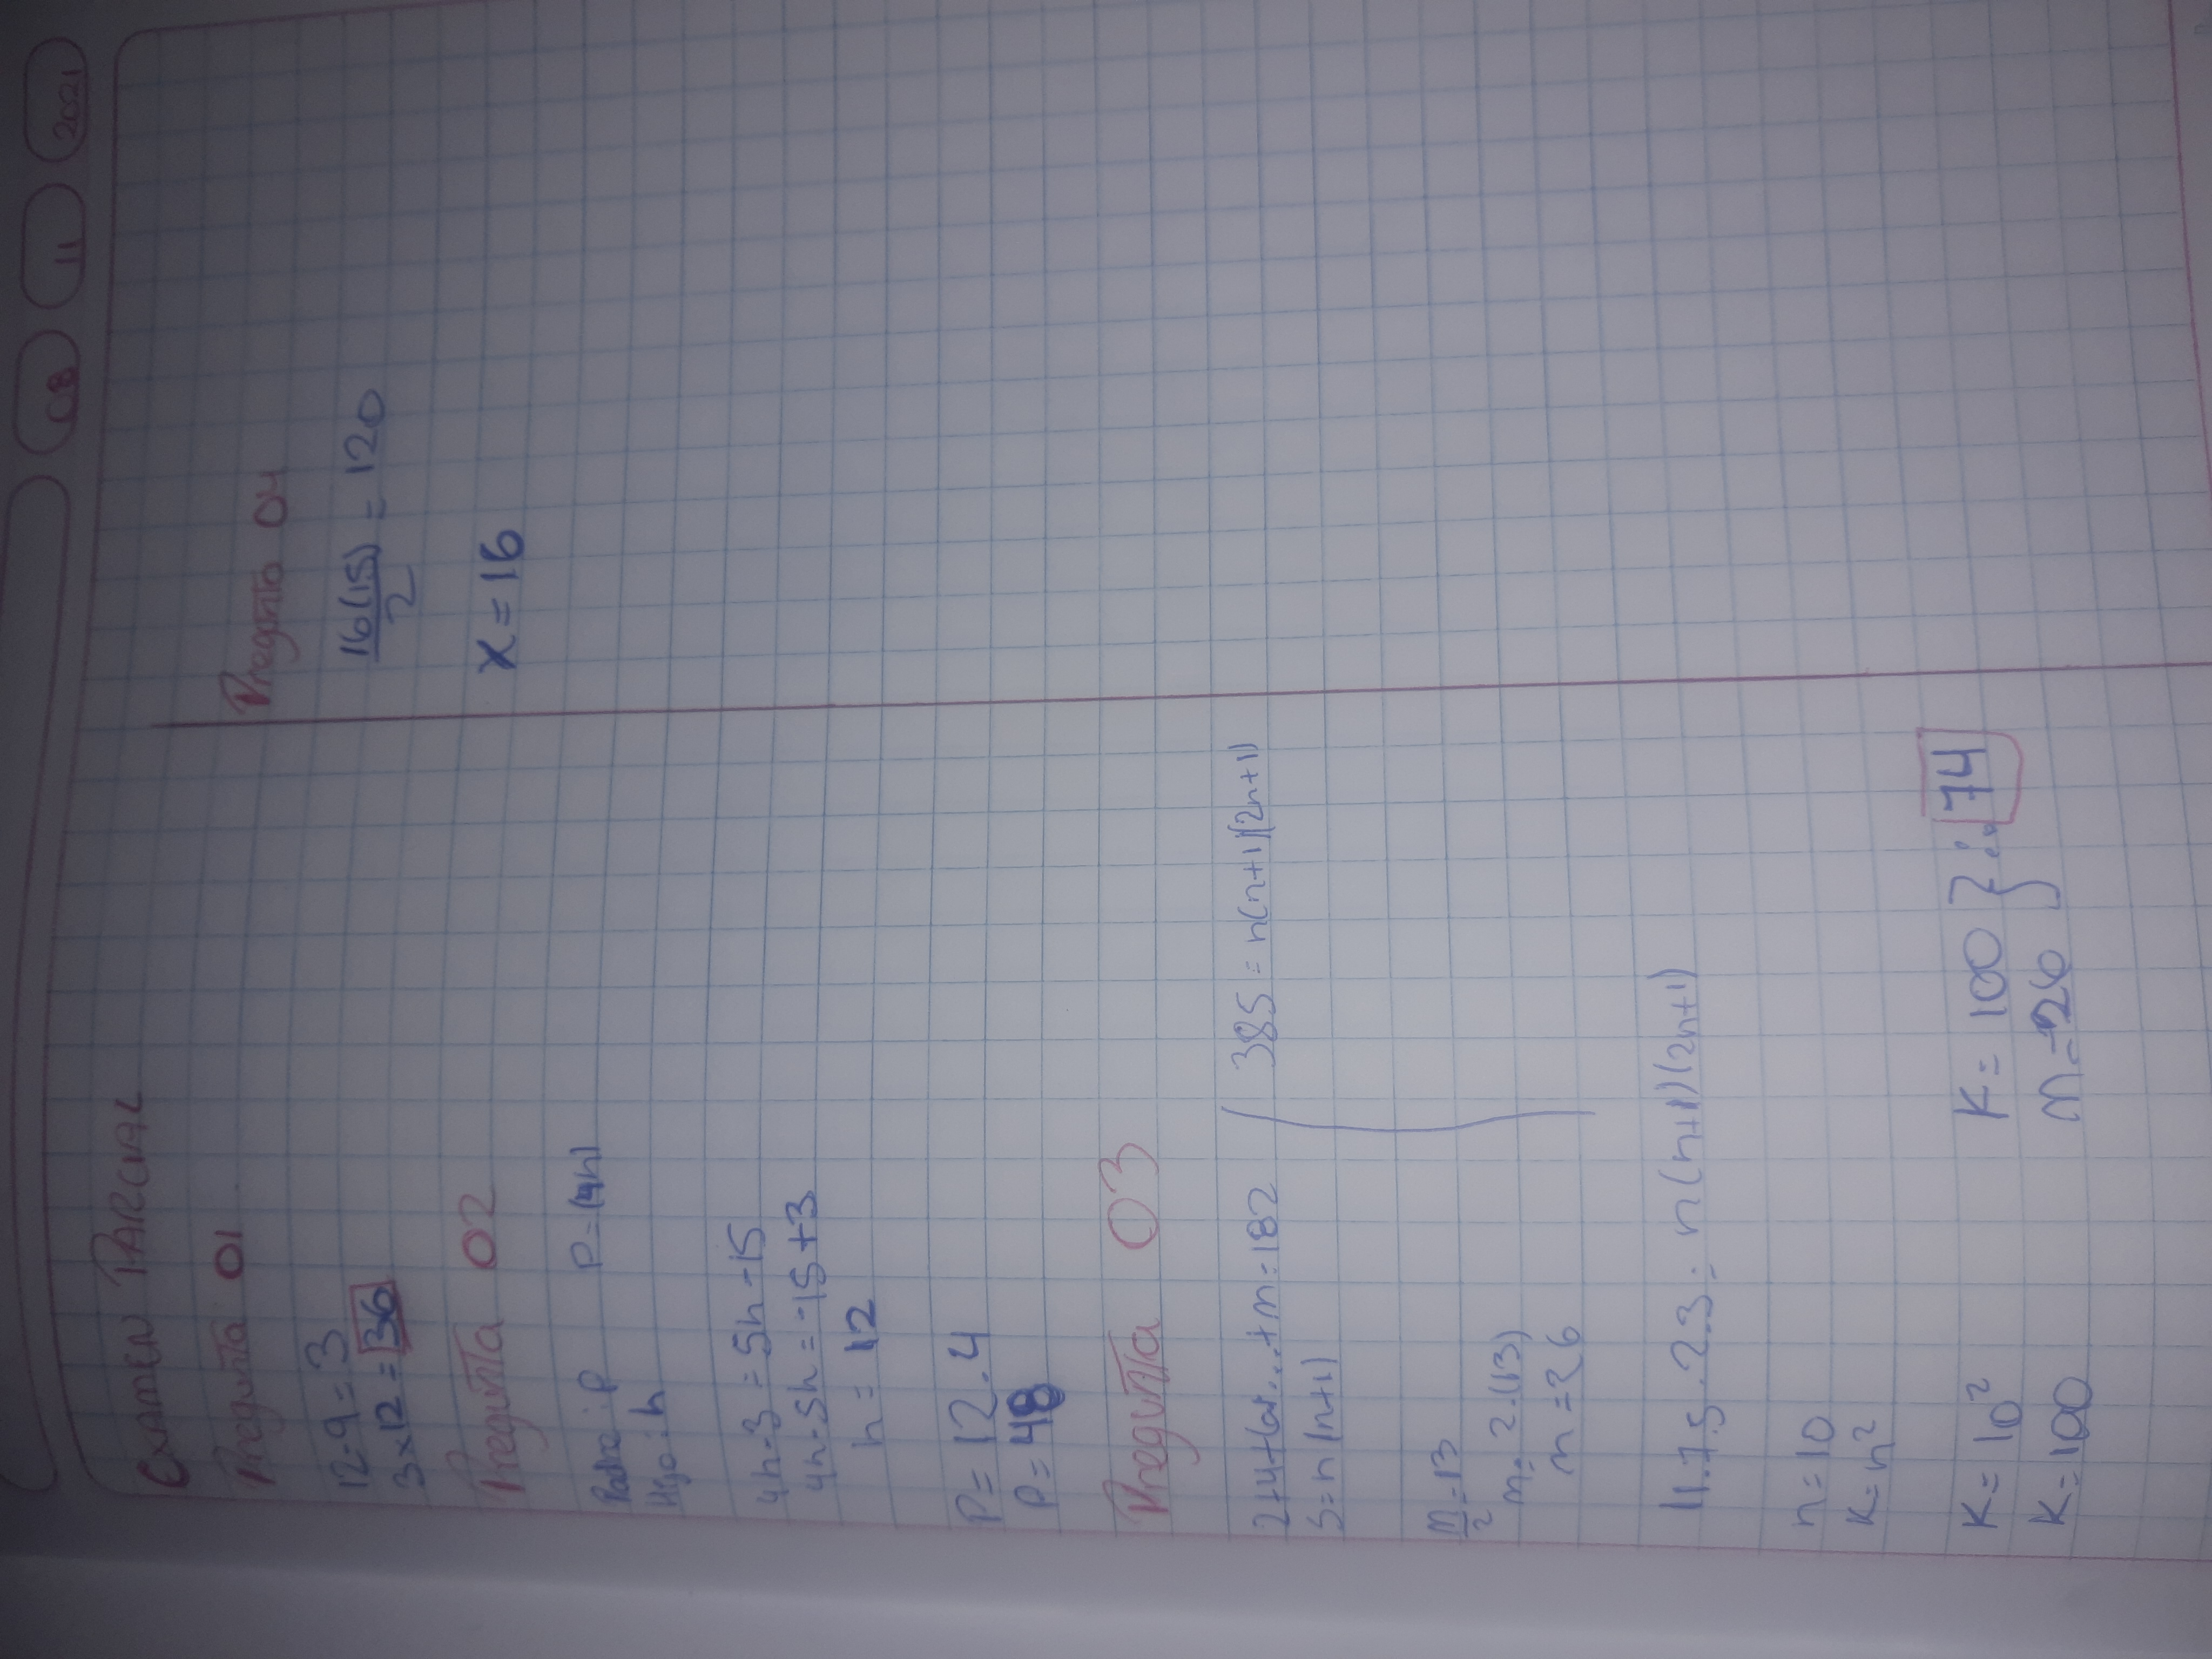 08 11 2021
EXAMEN PARCIAL
Pregunta 01
12-9=3
3x12=36
Pregunta 02
Padre: P P=(4h)
Hijo: h
4h-3=5h-15
4h-5h=-15+3
h=12
P=12.4
P=48
Pregunta 03
2+4+6+...+m=182
S=n(n+1)
m/2=13
m=2.(13)
m=26
385=n(n+1)(2n+1)
11.7.5.2.3=n(n+1)(2n+1)
n=10
K=n²
K=10²
K=100
K=100 } ∴ 74
m=26
Pregunta 04
16(15)/2=120
x=16